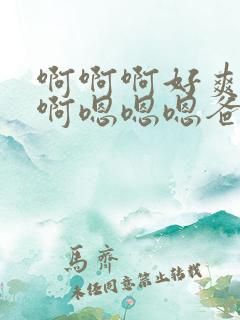 啊啊啊好爽
啊嗯嗯嗯爸
馬齊
未经同意禁止转载